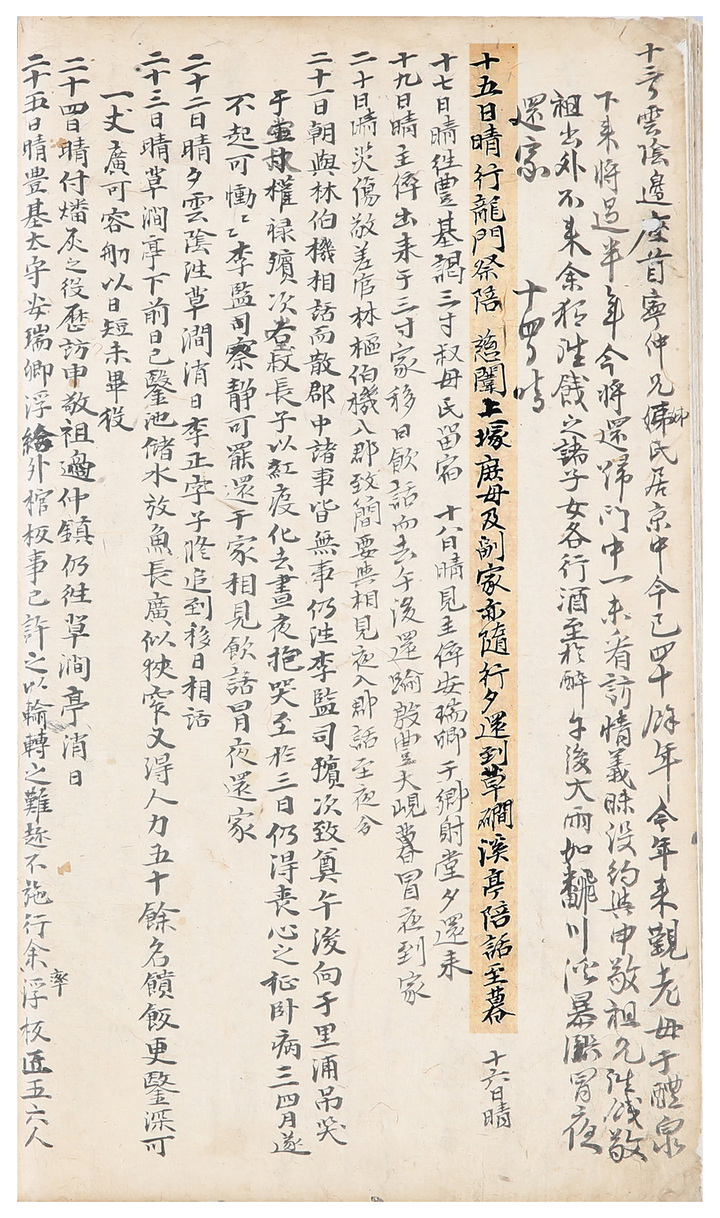 十三日雲陰邊座首寧仲兄姊氏居京中今已四十餘年今年來觀老母于醴泉
下來將過半年今將還歸門中一未看訪情義昧沒約與申敬祖兄往餞敬
祖出外不來余獨往餞之諸子女各行酒至於醉午後大雨如飜川漲暴漲冒夜
還家 十四日晴
十五日晴行龍門祭陪 慈闈上塚庶母及副家亦隨行夕還到草磵溪亭陪話至暮 十六日晴
十七日晴往豊基謁三寸叔母氏留宿 十八日晴見主倅安瑞卿于鄉射堂夕還來
十九日晴主倅出來于三寸家移日飲話而去午後還踰殷豊大峴暮冒夜到家
二十日晴災傷敬差官林樞伯機入郡致簡要與相見夜入郡話至夜分
二十一日朝與林伯機相話而散郡中諸事皆無事仍往李監司殯次致奠午後向于里浦吊哭
于權祿殯次叔長子以紅疫化去晝夜抱哭至於三日仍得喪心之症卧病三四月遂
不起可慟可慟李監司察靜可罷還于家相見飲話冒夜還家
二十二日晴夕雲陰往草澗消日李正字子脩追到移日相話
二十三日晴草澗亭下前日已鑿池儲水放魚長廣似狹窄又得人力五十餘名饋飯更鑿深可
一丈廣可容舠以日短未畢役
二十四日晴付燔灰之役歷訪申敬祖邊仲鎮仍往草澗亭消日
二十五日晴豊基太守安瑞卿浮給外棺板事已許之以輸轉之難趂不施行余率浮板匠五六人